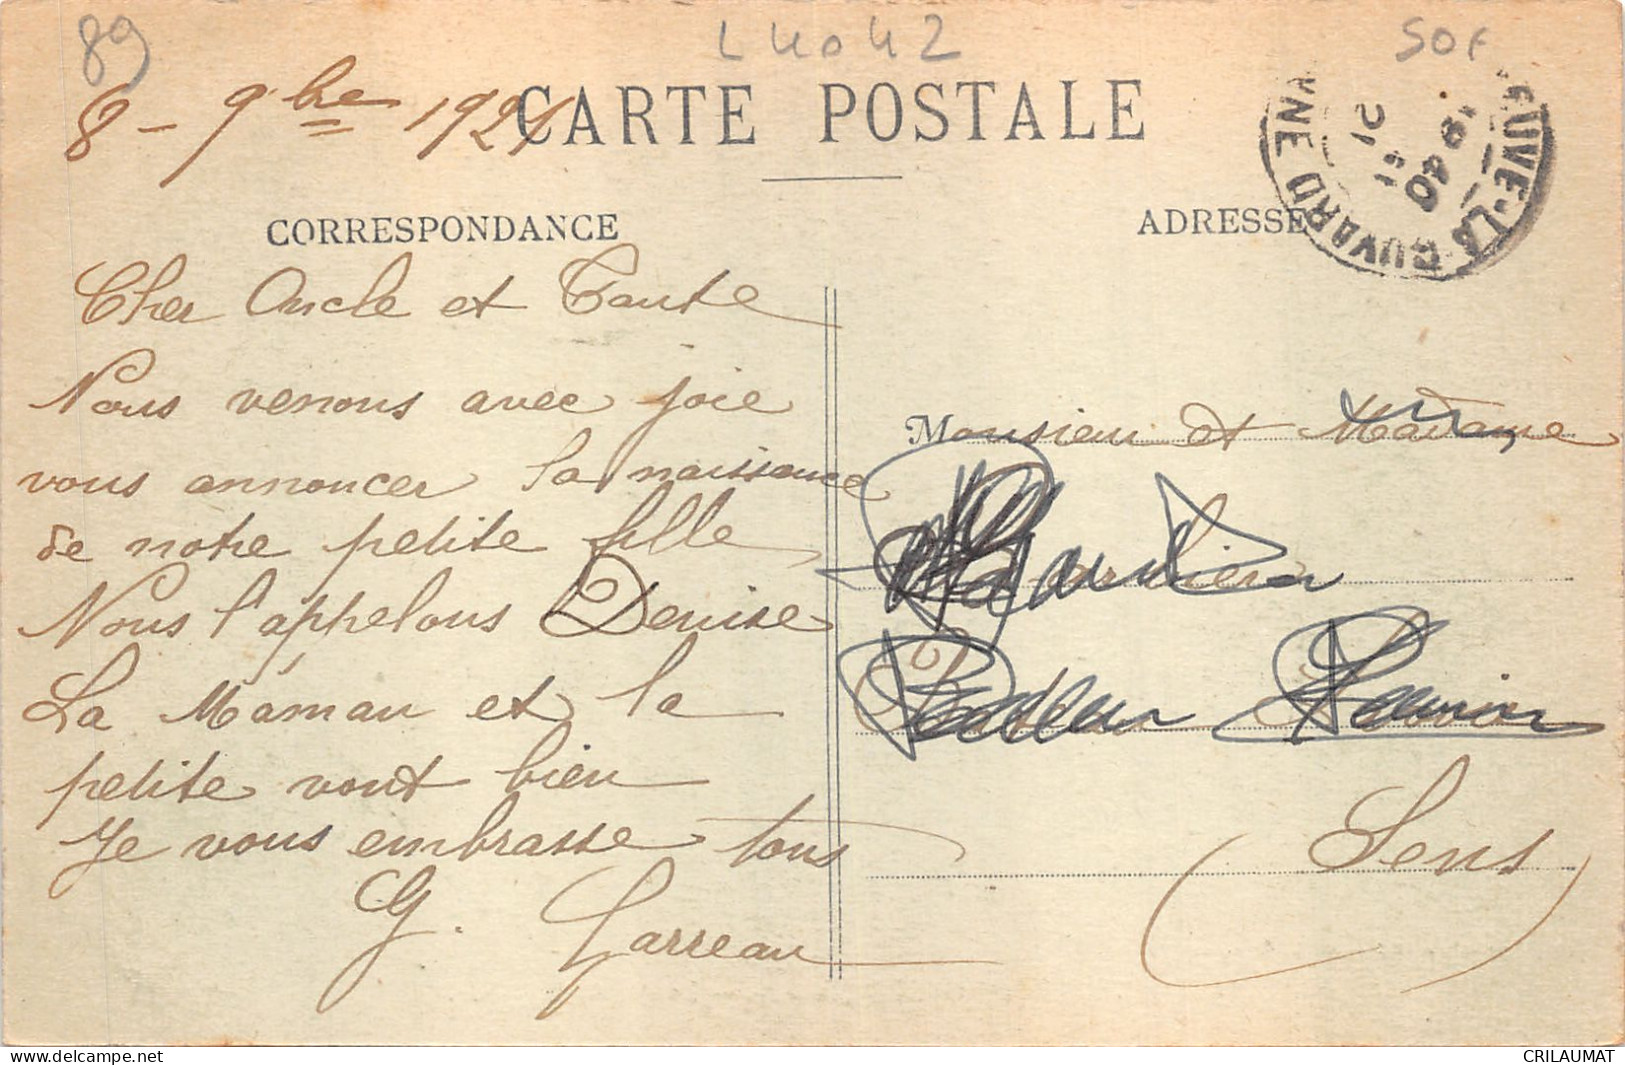 89
L4042
SOF
8 - 9bre 1921
CARTE POSTALE
CORRESPONDANCE
ADRESSE
Cher Oncle et Tante
Nous venons avec joie
vous annoncer la naissance
de notre petite fille
Nous l'appelons Denise
La Maman et la
petite vont bien
Je vous embrasse tous
G. Larreau
Monsieur et Madame
Sens
CRILAUMAT